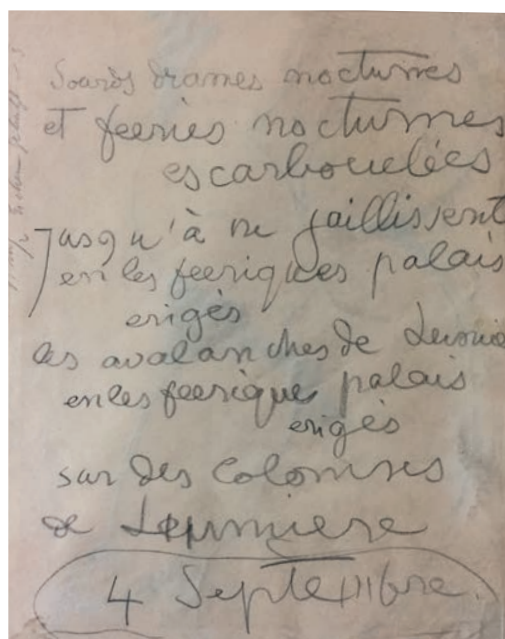 Sourds drames nocturnes
et feeries nocturnes
escarbouclées
Jusqu'à ne jaillissent
en les feeriques palais
erigès
les avalanches de
en les feerique palais
erigès
sur des Colonnes
de Lumière
4 Septembre.